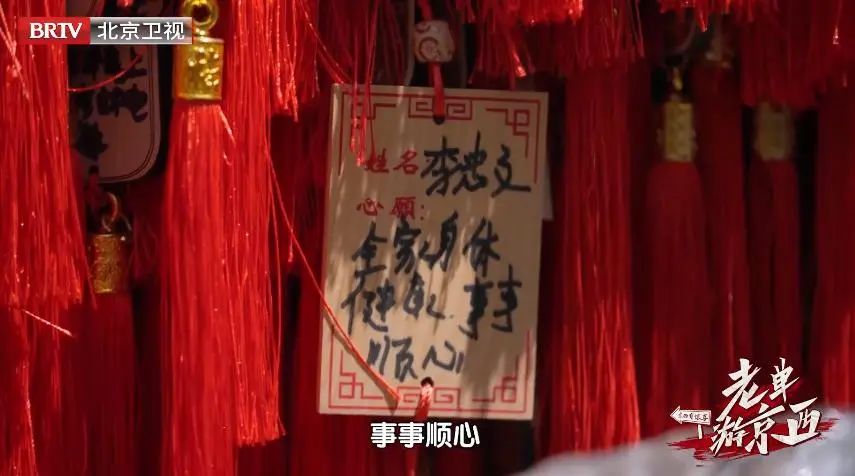 BRTV 北京卫视
姓名 李忠文
心愿:
全家身体
健康.事事
顺心
事事顺心
老单
游京西